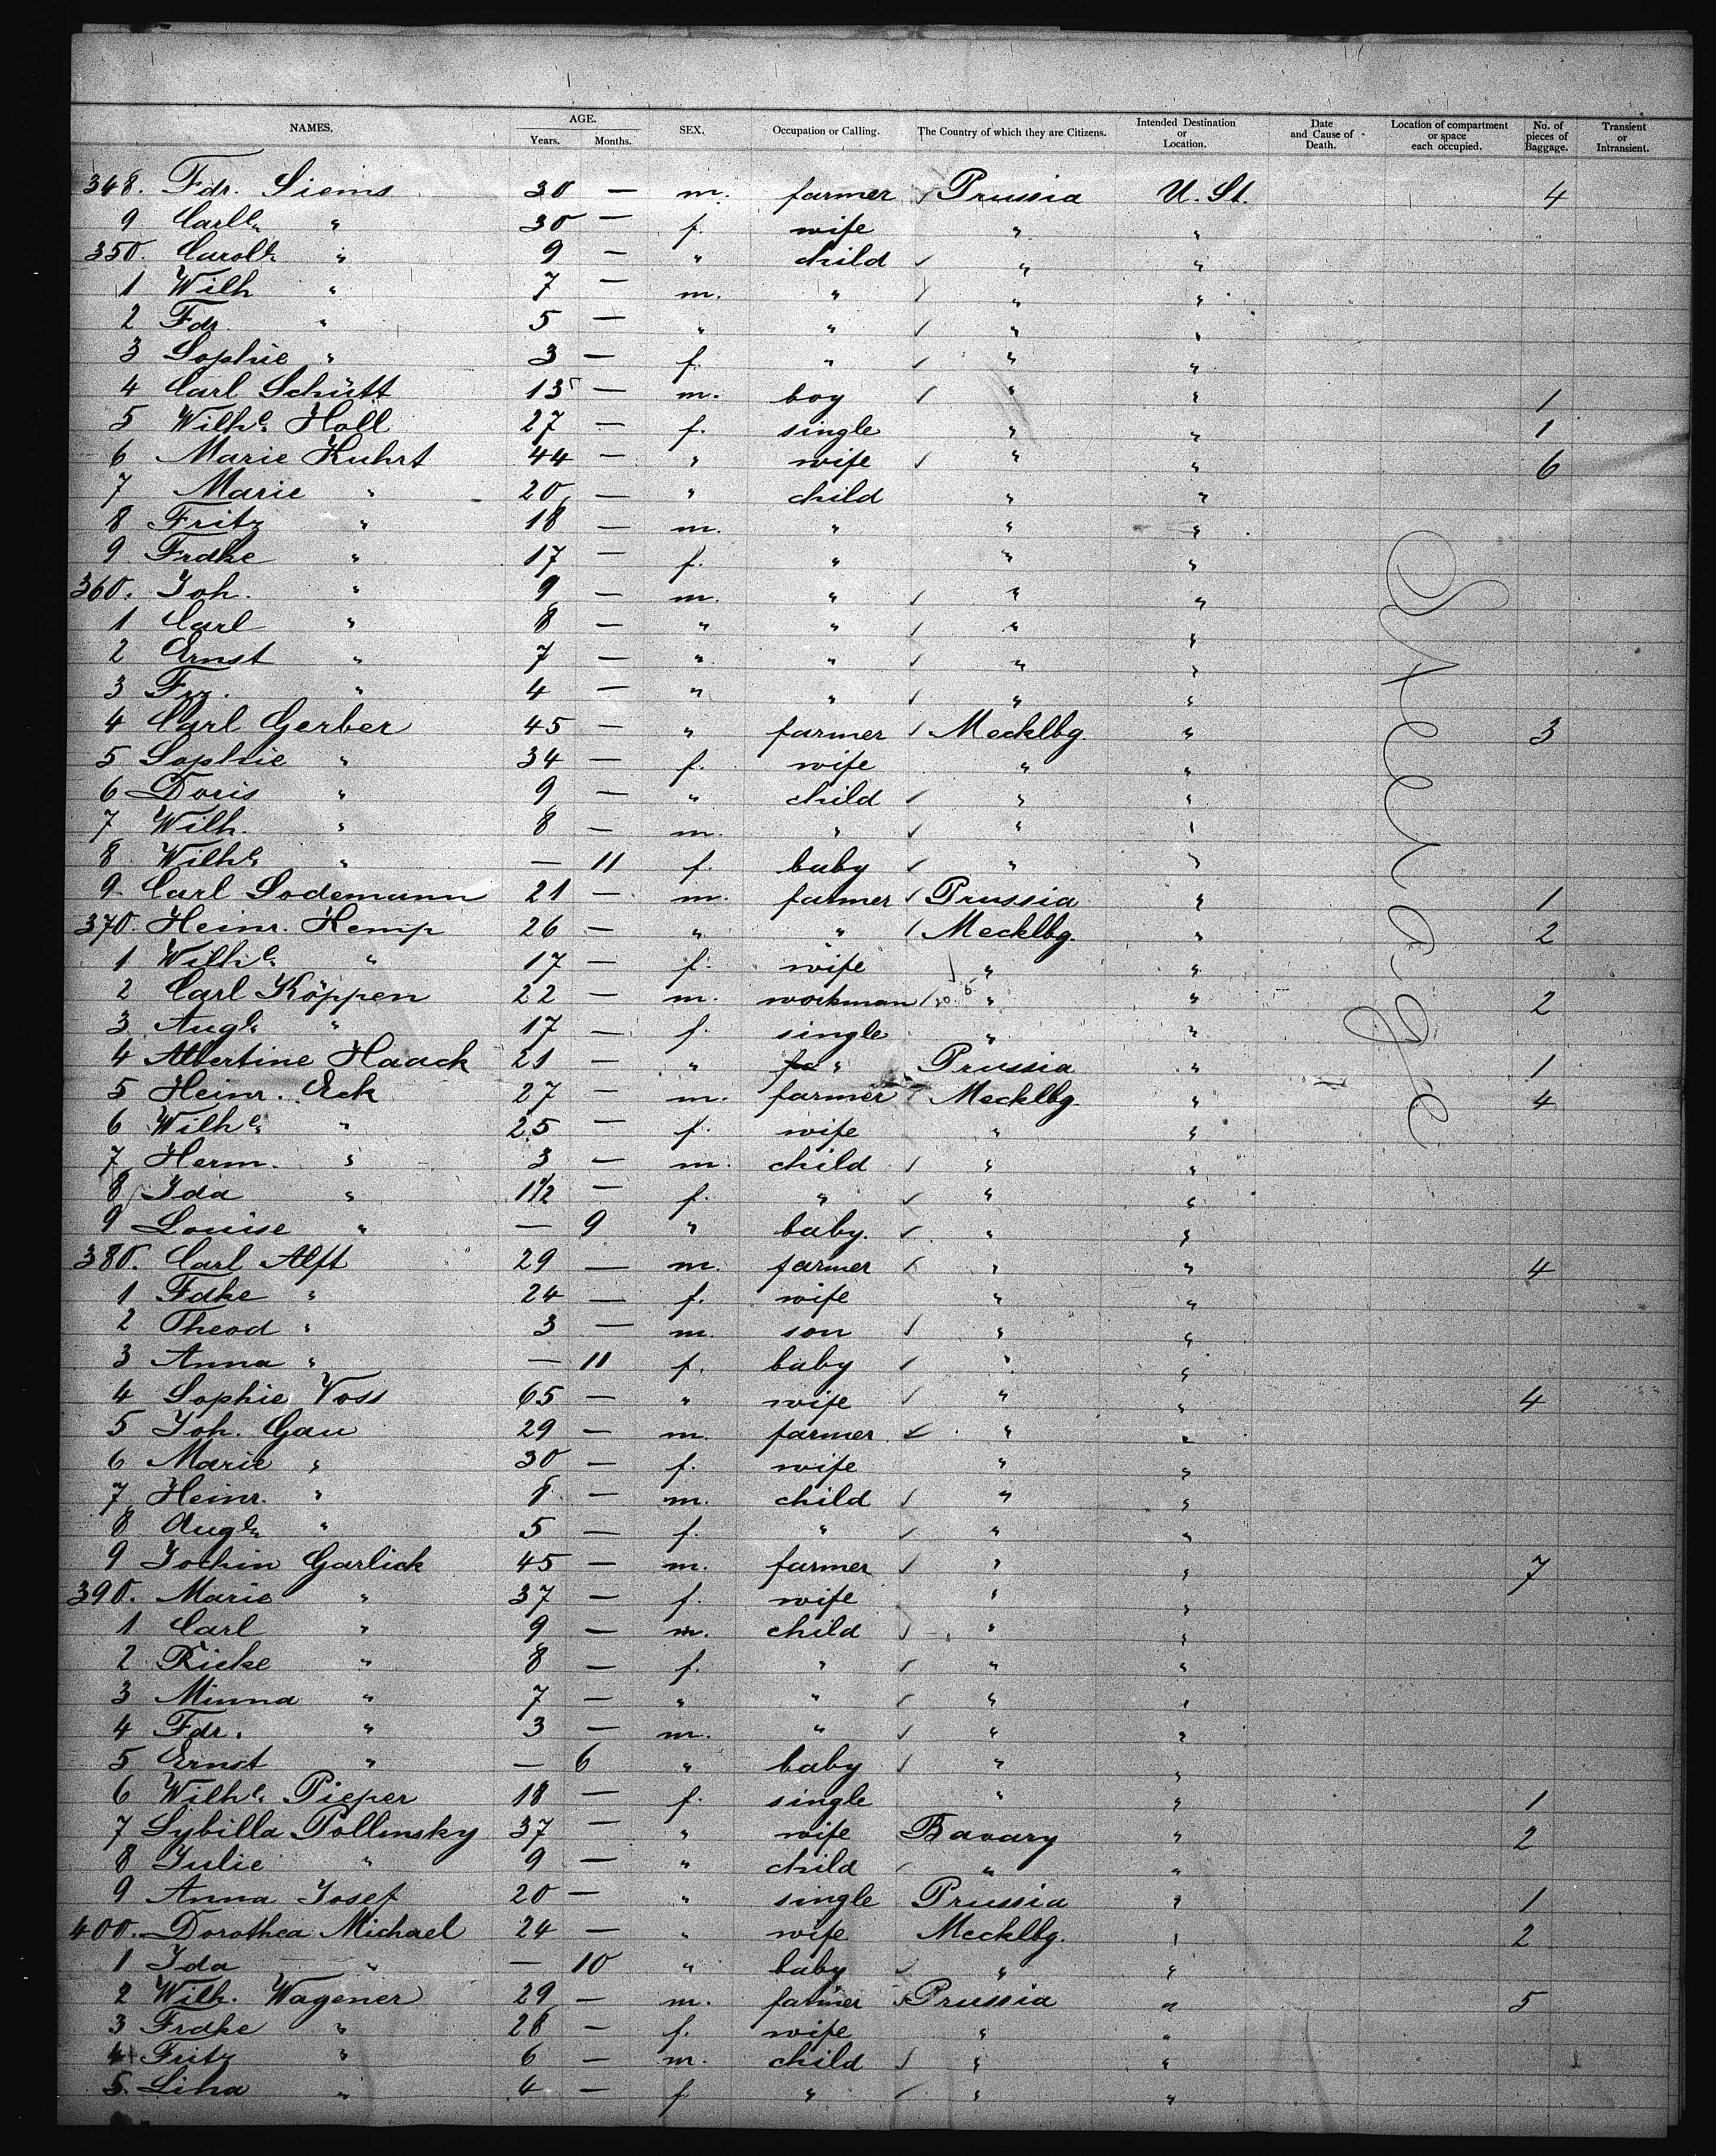 NAMES. AGE. Years. Months. SEX. Occupation or Calling. The Country of which they are Citizens. Intended Destination or Location. Date and Cause of Death. Location of compartment or space each occupied. No. of pieces of Baggage. Transient or Intransient.
348. Fdr. Siems 30 — m. farmer Prussia U. St. 4
9 Carle " 30 — f. wife " "
350. Carole " 9 — " child " "
1 Wilh " 7 — m. " " "
2 Fdr. " 5 — " " " "
3 Sophie " 3 — f. " " "
4 Carl Schütt 13 — m. boy " " 1
5 Wilhe Holl 27 — f. single " " 1
6 Marie Kuhrt 44 — " wife " " 6
7 Marie " 20 — " child " "
8 Fritz " 18 — m. " " "
9 Frdke " 17 — f. " " "
360. Joh. " 9 — m. " " "
1 Carl " 8 — " " " "
2 Ernst " 7 — " " " "
3 Frz. " 4 — " " " "
4 Carl Gerber 45 — " farmer Mecklbg. " 3
5 Sophie " 34 — f. wife " "
6 Doris " 9 — " child " "
7 Wilh. " 8 — m. " " "
8 Wilhe " — 11 f. baby " "
9 Carl Sodemann 21 — m. farmer Prussia " 1
370. Heinr. Hemp 26 — " " Mecklbg. " 2
1 Wilhe " 17 — f. wife " "
2 Carl Köppen 22 — m. workman " " 2
3 Augle " 17 — f. single " "
4 Albertine Haack 21 — " " Prussia " 1
5 Heinr. Eck 27 — m. farmer Mecklbg. " 4
6 Wilhe " 25 — f. wife " "
7 Herm. " 3 — m. child " "
8 Ida " 1 1/2 — f. " " "
9 Louise " — 9 " baby. " "
380. Carl Alft 29 — m. farmer " " 4
1 Fdke " 24 — f. wife " "
2 Theod " 3 — m. son " "
3 Anna " — 11 f. baby " "
4 Sophie Voss 65 — " wife " " 4
5 Joh. Gau 29 — m. farmer " "
6 Marie " 30 — f. wife " "
7 Heinr. " 8 — m. child " "
8 Augle " 5 — f. " " "
9 Jochin Garlick 45 — m. farmer " " 7
390. Marie " 37 — f. wife " "
1 Carl " 9 — m. child " "
2 Ricke " 8 — f. " " "
3 Minna " 7 — " " " "
4 Fdr. " 3 — m. " " "
5 Ernst " — 6 " baby " "
6 Wilhe Pieper 18 — f. single " " 1
7 Sybilla Pollinsky 37 — " wife Bavary " 2
8 Julie " 9 — " child " "
9 Anna Josef 20 — " single Prussia " 1
400. Dorothea Michael 24 — " wife Mecklbg. " 2
1 Ida " — 10 " baby " "
2 Wilh. Wagener 29 — m. farmer Prussia " 5
3 Frdke " 28 — f. wife " "
4 Fritz " 6 — m. child " "
5. Lina " 4 — f " " "
Steerage